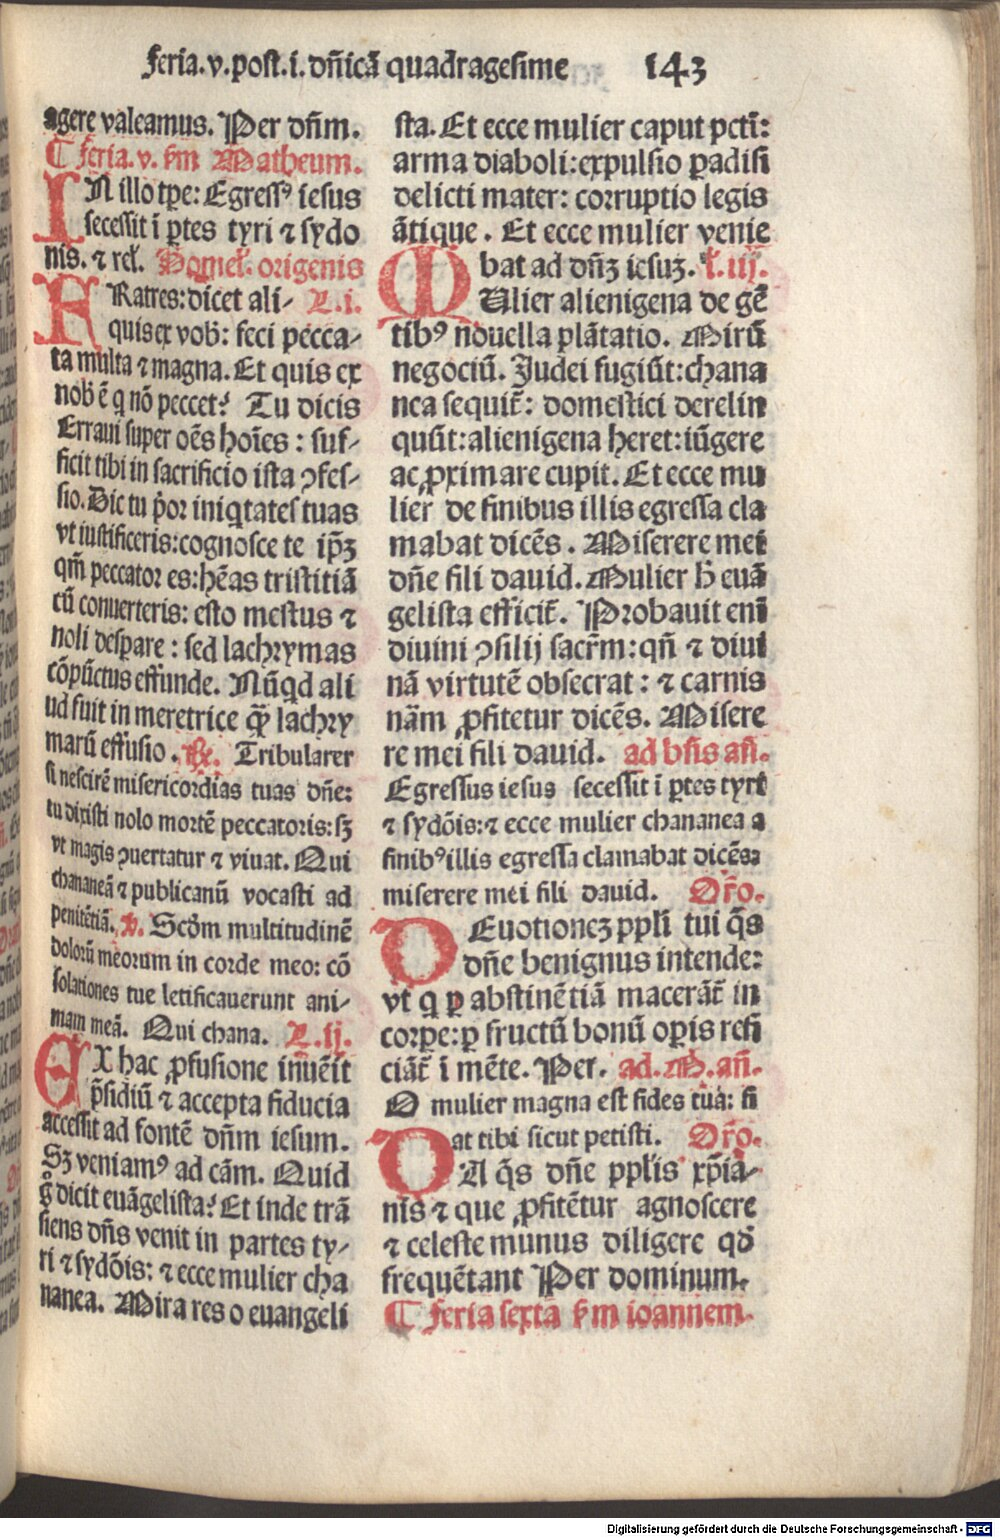 feria.v.post.i.dñicā quadragesime 143
agere valeamus. Per dñm.
¶ feria.v. scd'm Matheum.
IN illo tpe: Egressꝰ iesus
secessit ī ꝑtes tyri ⁊ sydo
nis. ⁊ rel̃. Homel̃. origenis
FRatres: dicet ali- L.i.
quis ex vob̄: feci pecca-
ta multa ⁊ magna. Et quis ex
nob̄ ē q nō peccet? Tu dicis
Erraui super oēs hoīes: suf-
ficit tibi in sacrificio ista ꝯfes-
sio. Dic tu p̄or iniqtates tuas
vt iustificeris: cognosce te ip̄ꝫ
qm̄ peccator es: hēas tristitiā
cū conuerteris: esto mestus ⁊
noli desperare: sed lachrymas
cōpūctus effunde. Nūqd ali
ud fuit in meretrice q̄ȝ lachry
marū effusio. ℟. Tribularer
si nescirē misericordias tuas dñe:
tu dixisti nolo mortē peccatoris: sꝫ
vt magis ꝯuertatur ⁊ viuat. Qui
chananeā ⁊ publicanū vocasti ad
penitētiā. ℣. Scd̄m multitudinē
dolorū meorum in corde meo: cō
solationes tue letificauerunt ani-
mam meā. Qui chana. L.ij.
EX hac ꝓfusione inuēit
p̄sidiū ⁊ accepta fiducia
accessit ad fontē dñm iesum.
Sꝫ veniamꝰ ad cām. Quid
g̊ dicit euāgelista? Et inde trā
siens dñs venit in partes ty-
ri ⁊ sydōis: ⁊ ecce mulier cha
nanea. Mira res o euangeli
sta. Et ecce mulier caput pctī:
arma diaboli: expulsio ꝑadisi
delicti mater: corruptio legis
ātique. Et ecce mulier venie
bat ad dñꝫ iesuꝫ. L.iij.
MUlier alienigena de gē
tibꝰ nouella plātatio. Mirū
negociū. Judei fugiūt: chana
nea sequit̄: domestici derelin
quūt: alienigena heret: iūgere
ac ꝓximare cupit. Et ecce mu
lier de finibus illis egressa cla
mabat dicēs. Miserere mei
dñe fili dauid. Mulier h̄ euā
gelista efficit̄. Probauit enī
diuini ꝯsilij sacr̄m: qñ ⁊ diui
nā virtutē obsecrat: ⁊ carnis
nām ꝓfitetur dicēs. Misere
re mei fili dauid. ad bn̄s an̄.
Egressus iesus secessit ī ꝑtes tyri
⁊ sydōis: ⁊ ecce mulier chananea a
finibꝰ illis egressa clamabat dicēs:
miserere mei fili dauid. Or̄o.
DEuotioneꝫ ppl̄i tui q̄s
dñe benignus intende:
vt q ꝑ abstinētiā macerāt̄ in
corpe: ꝑ fructū bonū opis refi
ciāt̄ ī mēte. Per. ad. M. an̄.
O mulier magna est fides tua: fi
at tibi sicut petisti. Or̄o.
DA q̄s dñe ppl̄is xp̄iā-
nis ⁊ que ꝓfitētur agnoscere
⁊ celeste munus diligere qd̄
frequētant Per dominum.
¶ feria sexta scd'm ioannem.
Digitalisierung gefördert durch die Deutsche Forschungsgemeinschaft - DFG